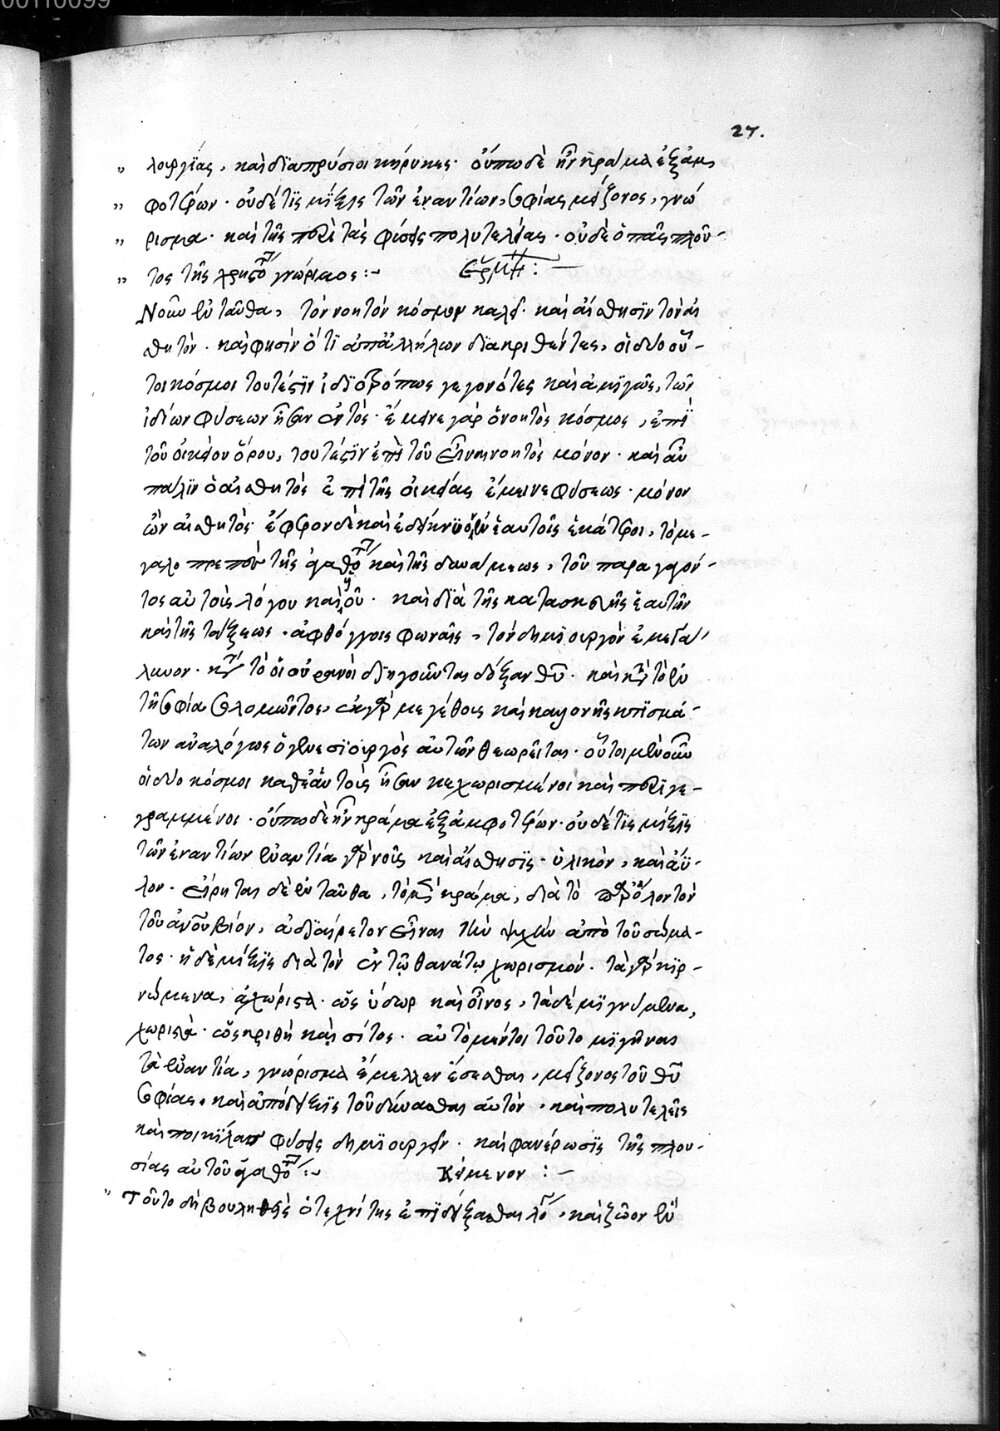 00110099
27.
„ λουργίας, καὶ διαπρύσιοι κήρυκες· οὔπω δὲ ἦν κρᾶμα ἐξ ἀμ
„ φοτέρων· οὐδέ τις μίξις τῶν ἐναντίων, σοφίας μείζονος, γνώ
„ ρισμα· καὶ τῆς περὶ τὰς φύσεις πολυτελείας· οὐδὲ ὁ πᾶς πλοῦ-
„ τος τῆς ἀγαθότητος γνώριμος :~ Ἑρμη :—
Νοῦν ἐνταῦθα, τὸν νοητὸν κόσμον καλεῖ· καὶ αἴσθησιν τὸν αἰ
σθητόν· καὶ φησὶν ὅτι ἀπ' ἀλλήλων διακριθέντες, οἱ δύο οὗ-
τοι κόσμοι τουτέστιν ἰδιοτρόπως γεγονότες καὶ ἀμιγῶς, τῶν
ἰδίων φύσεων ἦσαν ἐντός· ἔμεινε γὰρ ὁ νοητὸς κόσμος, ἐπὶ
τοῦ οἰκείου ὅρου, τουτέστιν ἐπὶ τοῦ εἶναι νοητὸς μόνον· καὶ αὖ
πάλιν ὁ αἰσθητὸς ἐπὶ τῆς οἰκείας ἔμεινε φύσεως· μόνον
ὢν αἰσθητός· ἔφερον δὲ καὶ ἐδείκνυον ἐν ἑαυτοῖς ἑκάτεροι, τὸ με-
γαλοπρεπὸν τῆς ἀγαθότητος καὶ τῆς δυνάμεως, τοῦ παραγαγόν-
τος αὐτοὺς λόγου καὶ θεοῦ· καὶ διὰ τῆς κατασκευῆς ἑαυτῶν
καὶ τῆς τάξεως· ἀφθόγγοις φωναῖς, τὸν δημιουργὸν ἐμεγά-
λυνον· κατὰ τὸ οἱ οὐρανοὶ διηγοῦνται δόξαν θεοῦ· καὶ κατὰ τὸ ἐν
τῇ σοφίᾳ σολομῶντος, ἐκ γὰρ μεγέθους καὶ καλλονῆς κτισμά-
των ἀναλόγως ὁ γενεσιουργὸς αὐτῶν θεωρεῖται· οὗτοι μὲν οὖν
οἱ δύο κόσμοι καθ' ἑαυτοὺς ἦσαν κεχωρισμένοι καὶ περιγε-
γραμμένοι· οὔπω δὲ ἦν κρᾶμα ἐξ ἀμφοτέρων· οὐδέ τις μίξις
τῶν ἐναντίων ἐναντία γὰρ νοῦς καὶ αἴσθησις· ὑλικὸν, καὶ ἄϋ-
λον· εἴρηται δὲ ἐνταῦθα, τὸ μὲν κρᾶμα, διὰ τὸ παρ' ὅλον τὸν
τοῦ ἀνθρώπου βίον, ἀδιαίρετον εἶναι τὴν ψυχὴν ἀπὸ τοῦ σώμα-
τος· ἡ δὲ μίξις διὰ τὸν ἐν τῷ θανάτῳ χωρισμόν· τὰ γὰρ κιρ-
νώμενα, ἀχώριστα· ὡς ὕδωρ καὶ οἶνος, τὰ δὲ μιγνύμενα,
χωριστά· ὡς κριθὴ καὶ σῖτος· αὐτὸ μέντοι τοῦτο μιγῆναι
τὰ ἐναντία, γνώρισμα ἔμελλεν ἔσεσθαι, μείζονος τοῦ θεοῦ
σοφίας, καὶ ἀπόδειξις τοῦ δύνασθαι αὐτὸν, καὶ πολυτελεῖς
καὶ ποικίλας φύσεις δημιουργεῖν· καὶ φανέρωσις τῆς πλου-
σίας αὐτοῦ ἀγαθότητος :~ Κείμενον :—
„ Τοῦτο δὴ βουληθεὶς ὁ τεχνίτης ἐπιδείξασθαι λόγος, καὶ ζῶον ἓν